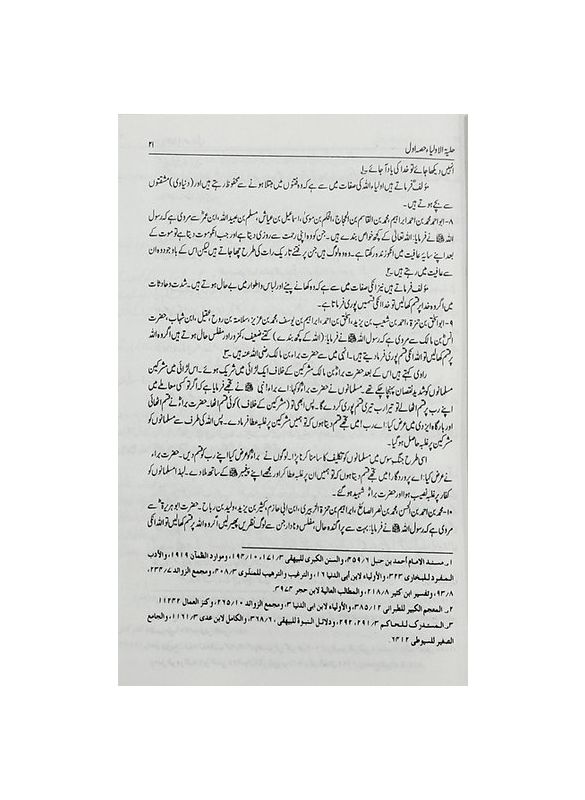 حلیۃ الاولیاء حصہ اول ۲۱
انہیں دیکھا جائے تو خدا کی یاد آ جائے۔ ۱
مؤلف فرماتے ہیں اولیاء اللہ کی صفات میں سے ہے کہ وہ فتنوں میں مبتلا ہونے سے محفوظ رہتے ہیں اور (دنیاوی) مشقتوں
سے بچے ہوتے ہیں۔
۸۔ ابو احمد محمد بن احمد ابراہیم، محمد بن القاسم بن الحجاج، الحکم بن موسیٰ، اسماعیل بن عیاش، مسلم بن عبید اللہ، ابن عمرؓ سے مروی ہے کہ رسول
اللہ ﷺ نے فرمایا: اللہ تعالیٰ کے کچھ خواص بندے ہیں۔ جن کو وہ اپنی رحمت سے روزی دیتا ہے اور جب انکو موت دیتا ہے تو موت کے
بعد اپنے سایہ عافیت میں انکو زندہ رکھتا ہے۔ یہ وہ لوگ ہیں جن پر فتنے تاریک رات کی طرح چھا جاتے ہیں لیکن اس کے باوجود وہ ان
سے عافیت میں رہتے ہیں۔ ۲
مؤلف فرماتے ہیں نیز انکی صفات میں سے ہے کہ وہ کھانے پینے اور لباس و اطوار میں بے حال ہوتے ہیں۔ شدت و حادثات
میں اگر وہ خدا پر قسم کھا لیں تو خدا انکی قسمیں پوری فرماتا ہے۔
۹۔ ابو اسحٰق بن حمزۃ، احمد بن شعیب بن یزید، اسحٰق بن احمد، ابراہیم بن یوسف، محمد بن عزیز، سلامۃ بن روح، عقیل، ابن شہاب، حضرت
انسؓ بن مالک سے مروی ہے کہ رسول اللہ ﷺ نے فرمایا: (اللہ کے کچھ بندے) کتنے ضعیف، کمزور اور مفلس حال ہوتے ہیں اگر وہ اللہ
پر قسم کھا لیں تو اللہ انکی قسم پوری فرما دیتے ہیں۔ انہی میں سے حضرت براء بن مالک رضی اللہ عنہ ہیں۔ ۳
راوی کہتے ہیں اس کے بعد حضرت براءؓ بن مالک مشرکین کے خلاف ایک لڑائی میں شریک ہوئے۔ اس لڑائی میں مشرکین
مسلمانوں کو شدید نقصان پہنچا چکے تھے۔ مسلمانوں نے حضرت براءؓ کو کہا: اے براء! نبی ﷺ نے تجھے فرمایا ہے کہ اگر تو کسی معاملے میں
اپنے رب پر قسم اٹھا لے تو تیرا رب تیری قسم پوری کر دے گا۔ پس ابھی تو (مشرکین کے خلاف) کوئی قسم اٹھا۔ حضرت براءؓ نے قسم اٹھائی
اور بارگاہ ایزدی میں عرض کیا: اے رب! میں تجھے قسم دیتا ہوں کہ تو ہمیں مشرکین پر غلبہ عطا فرما دے۔ پس اللہ کی طرف سے مسلمانوں کو
مشرکین پر غلبہ حاصل ہو گیا۔
اسی طرح جنگ سوس میں مسلمانوں کو تکلیف کا سامنا کرنا پڑا۔ لوگوں نے براءؓ کو عرض کیا اپنے رب کو قسم دیں۔ حضرت براء
نے عرض کیا: اے پروردگار! میں تجھے قسم دیتا ہوں کہ تو ہمیں ان پر غلبہ عطا کر اور مجھے اپنے پیغمبر ﷺ کے ساتھ ملا دے۔ لہٰذا مسلمانوں کو
کفار پر غلبہ نصیب ہوا اور حضرت براءؓ شہید ہو گئے۔
۱۰۔ محمد بن احمد بن الحسن، محمد بن نصر الصائغ، ابراہیم بن حمزۃ الزبیری، ابن ابی حازم، کثیر بن یزید، ولید بن رباح۔ حضرت ابو ہریرۃؓ سے
مروی ہے کہ رسول اللہ ﷺ نے فرمایا: بہت سے پراگندہ حال، مفلس و نادار جن سے لوگ نظریں پھیر لیں اگر وہ اللہ پر قسم کھا لیں تو اللہ انکی
۱۔ مسند الامام أحمد بن حنبل ۶/۳۵۹، والسنن الكبرى للبيهقي ۳/۱۷۱، ۱۰/۱۹۳، وموارد الظمآن ۱۹۱۹، والأدب
المفرد للبخاري ۳۲۳، والأولياء لابن أبي الدنيا ۱۶، والترغيب والترهيب للمنذري ۳/۳۰۸، ومجمع الزوائد ۷/۲۳۲،
۸/۹۳، وتفسير ابن كثير ۸/۲۱۸، والمطالب العالية لابن حجر ۳۹۷۳.
۲۔ المعجم الكبير للطبراني ۱۲/۳۸۵، والأولياء لابن أبي الدنيا ۳، ومجمع الزوائد ۱۰/۲۶۵، وكنز العمال ۱۱۲۳۲
۳۔ المستدرك للحاكم ۳/۲۹۱، ۲۹۲، ودلائل النبوة للبيهقي ۶/۳۶۸، والكامل لابن عدي ۳/۱۱۶۱، والجامع
الصغير للسيوطي ۶۳۱۲.